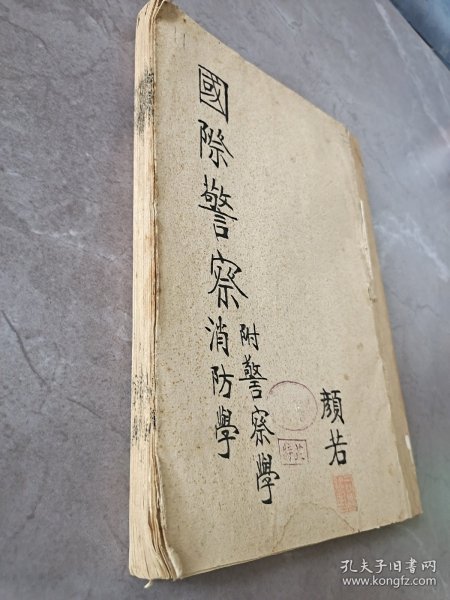 國際警察消防學
附警察學
顏若
孔夫子旧书网
www.kongfz.com